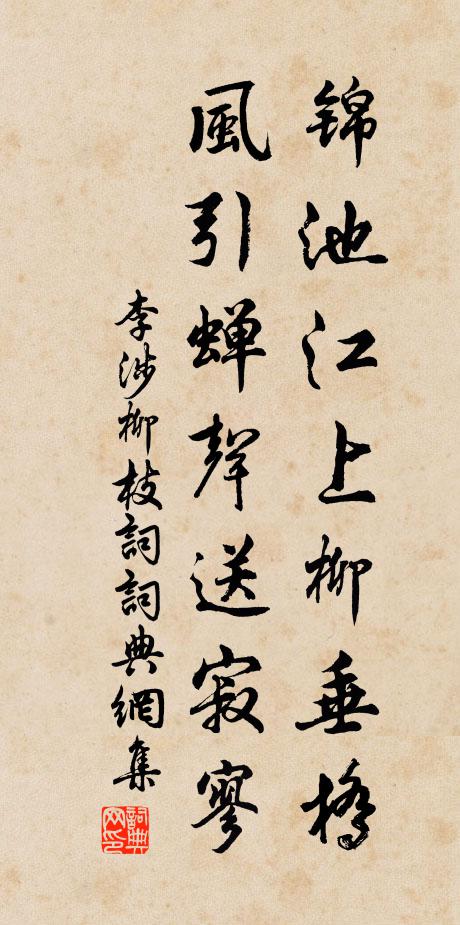 锦池江上柳垂橋
風引蝉聲送寂寥
李涉柳枝詞詞典網集
詞典网印